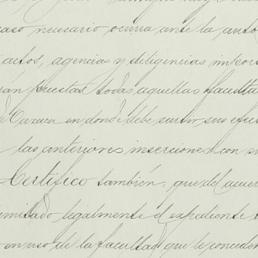 caso necesario ocurra ante la auto
actos, agencias y diligencias
todas aquellas faculta
Caracas en donde debe surtir sus efec
las anteriores inserciones con su
Certifico también, que de acuer
legalmente el expediente
en uso de la facultad que le conceden